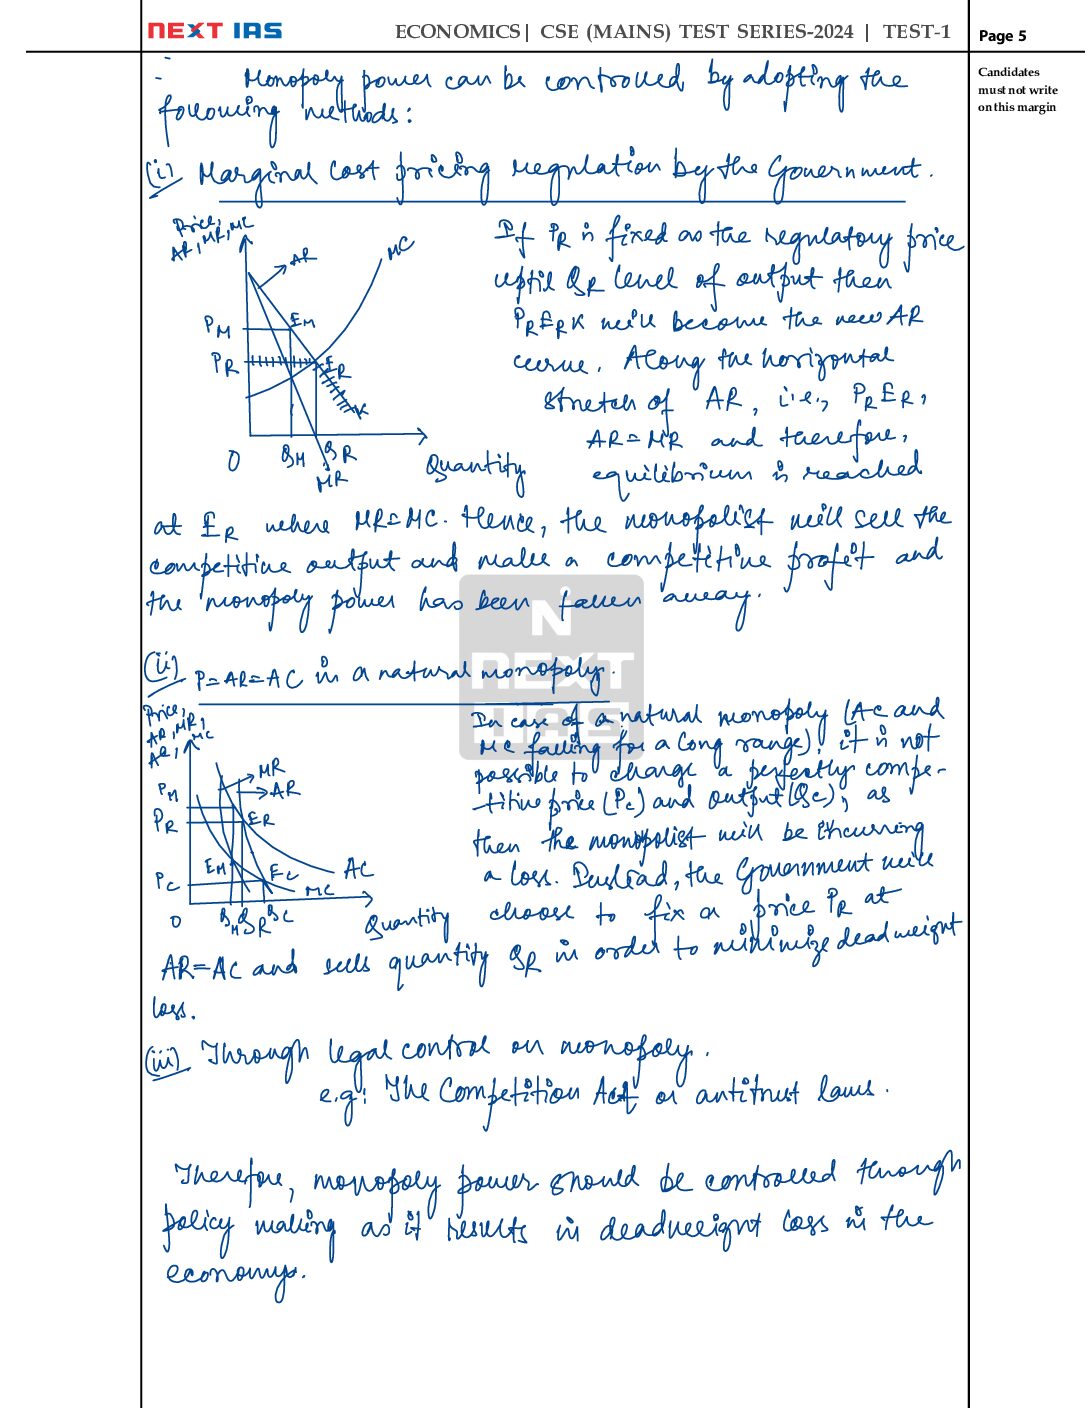 NEXT IAS
ECONOMICS| CSE (MAINS) TEST SERIES-2024 | TEST-1
Page 5
Candidates
must not write
on this margin
Monopoly power can be controlled by adopting the
following methods:
(i) Marginal cost pricing regulation by the Government.
Price,
AR, MR, MC
AR
MC
PM
EM
PR
ER
K
O
QM
QR
MR
Quantity
If PR is fixed as the regulatory price
uptil QR level of output then
PRERK will become the new AR
curve. Along the horizontal
stretch of AR, i.e., PRER,
AR=MR and therefore,
equilibrium is reached
at ER where MR=MC. Hence, the monopolist will sell the
competitive output and make a competitive profit and
the monopoly power has been fallen away.
(ii) P=AR=AC in a natural monopoly.
Price,
AR, MR,
AC, MC
MR
AR
PM
PR
ER
EM
EC
AC
PC
MC
O
QM
QR
QC
Quantity
In case of a natural monopoly (AC and
MC falling for a long range), it is not
possible to charge a perfectly compe-
-titive price (Pc) and output (Qc), as
then the monopolist will be incurring
a loss. Instead, the Government will
choose to fix a price PR at
AR=AC and sells quantity QR in order to minimize deadweight
loss.
(iii) Through legal control on monopoly.
e.g: The Competition Act or antitrust laws.
Therefore, monopoly power should be controlled through
policy making as it results in deadweight loss in the
economy.
N
NEXT
IAS